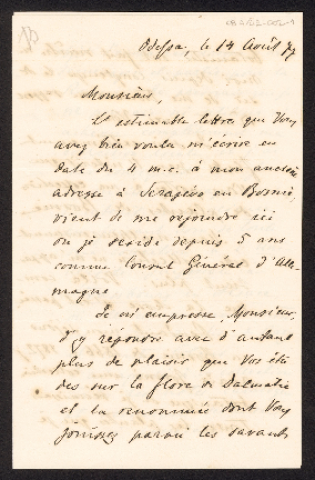 Odessa, le 14 Août 79
Monsieur,
L'estimable lettre que Vous
avez bien voulu m'écrire en
date du 4 m.c. à mon ancienne
adresse à Serajevo en Bosnie,
vient de me rejoindre ici
où je reside depuis 5 ans
comme Consul Général d'Alle-
magne
Je m'empresse, Monsieur,
d'y répondre avec d'autant
plus de plaisir que Vos étu
des sur la flore de Dalmatie
et la renommée dont Vous
jouissez parmi les savants